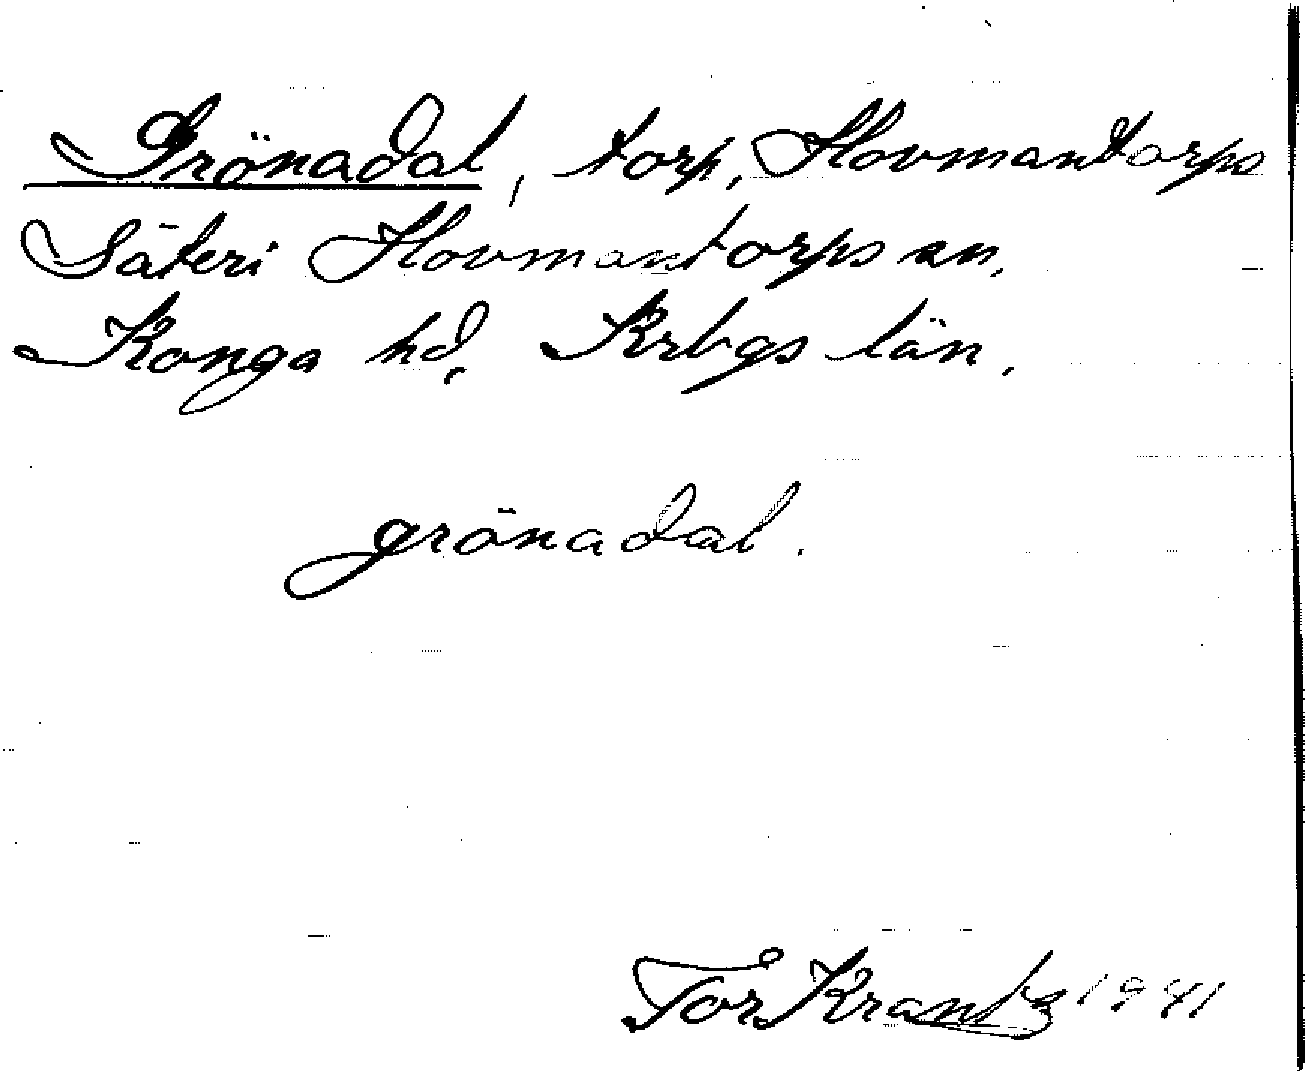 Grönadal, torp, Hovmantorps
Säteri Hovmantorps sn,
Konga hd, Krbgs län.
grönadal.
Tor Krantz 1941